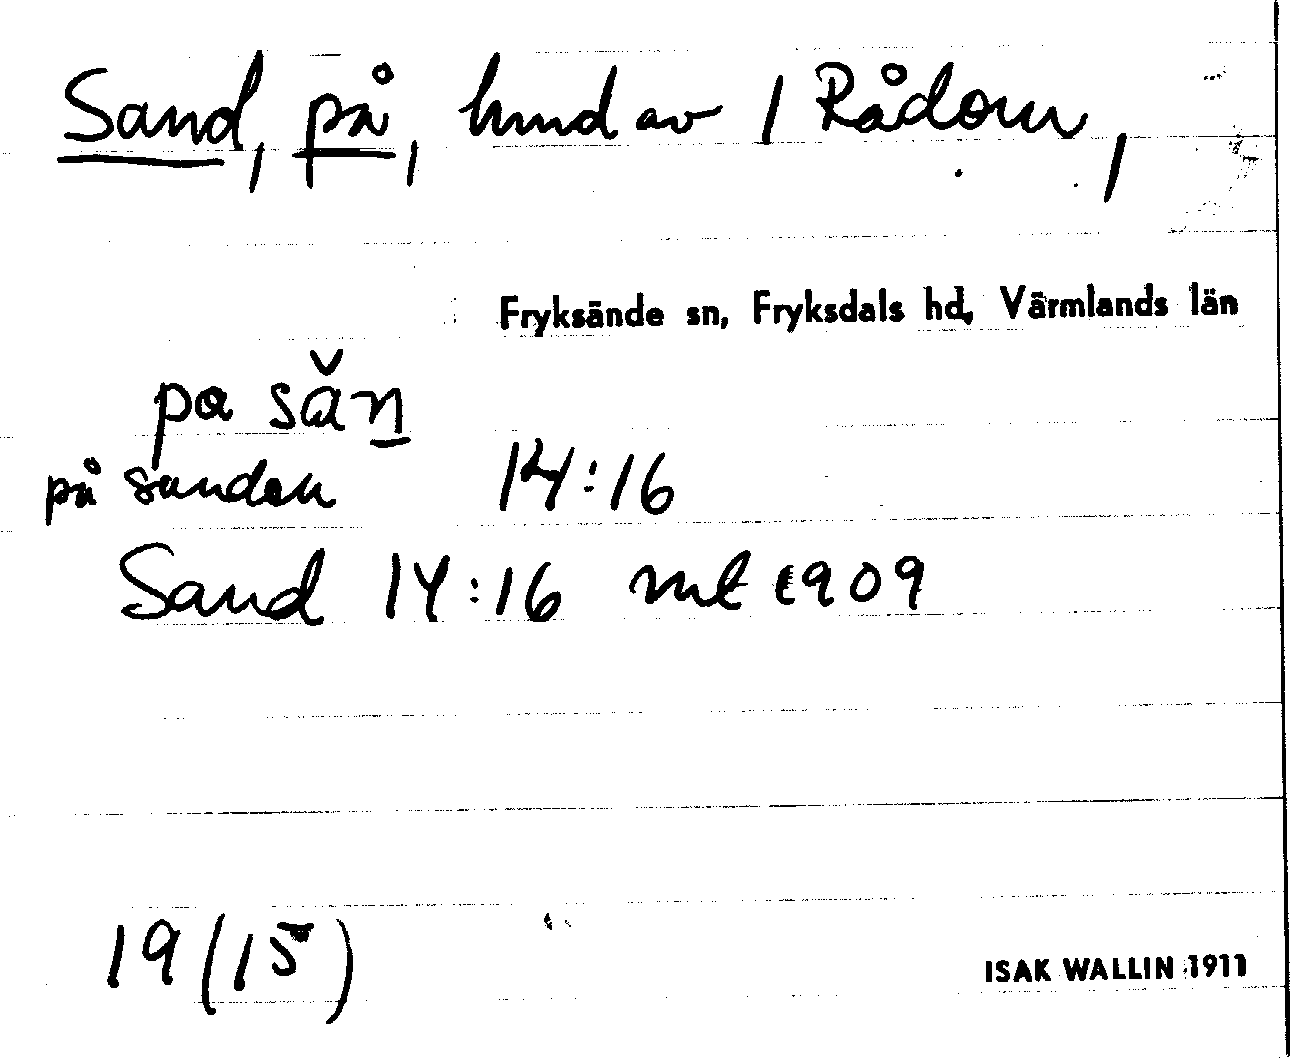 Sand, på, hmd av 1 Rådom,
Fryksände sn, Fryksdals hd, Värmlands län
pa săn
på sanden 14:16
Sand 14:16 mt 1909
19 (15)
ISAK WALLIN 1911